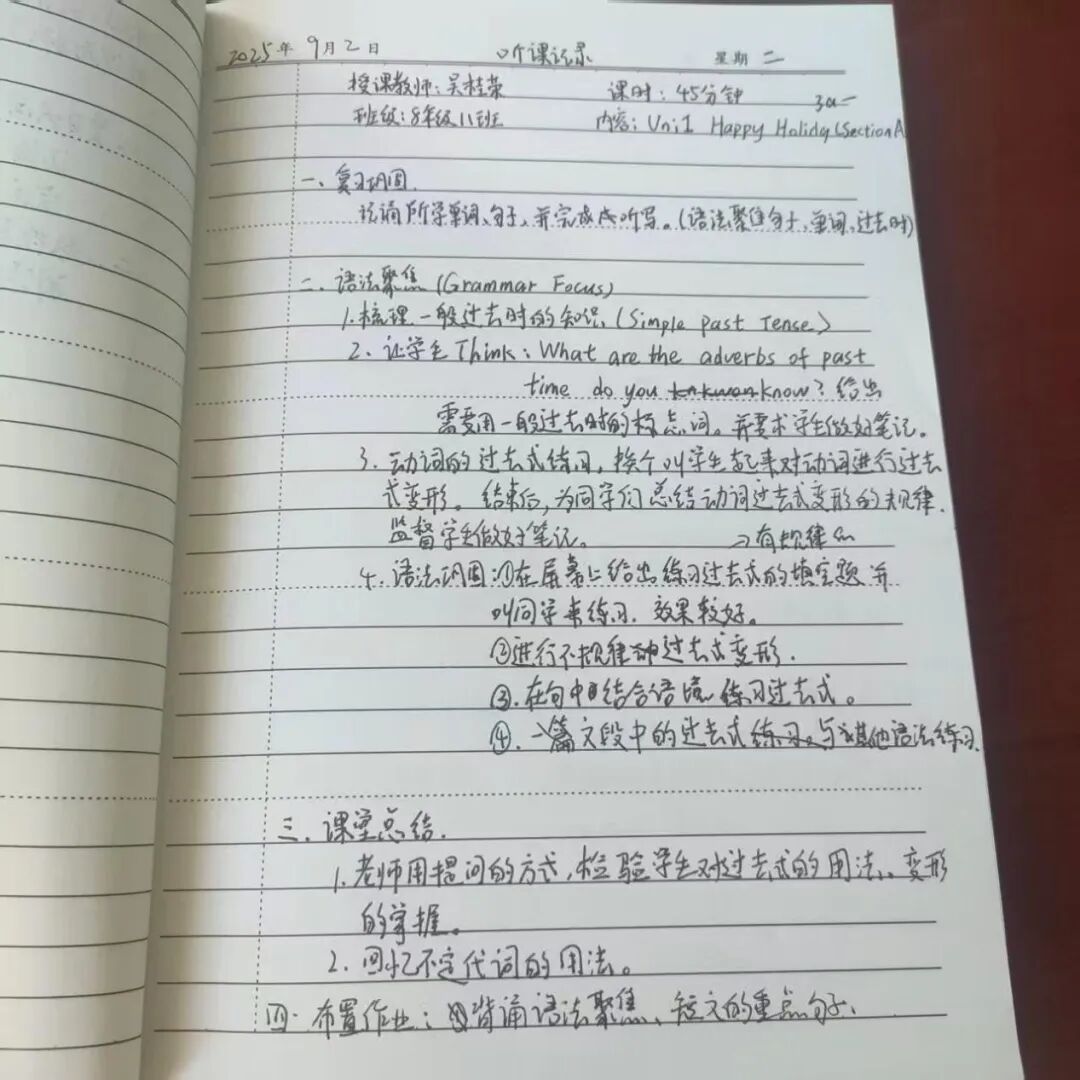 2025年 9月2日 听课记录 星期 二
授课教师:吴桂荣 课时:45分钟
班级:8年级11班 内容:Uni1 Happy Holiday(Section A 3a-
一、复习巩固.
读诵所学单词、句子,并完成听写。(语法聚焦句子,单词、过去时)
二、语法聚焦(Grammar Focus)
1.梳理一般过去时的知识.(Simple past Tense)
2.让学生Think:What are the adverbs of past
time do you know?给出
需要用一般过去时的标志词。并要求学生做好笔记。
3.动词的过去式练习,挨个叫学生起来对动词进行过去
式变形。结束后,为同学们总结动词过去式变形的规律.
监督学生做好笔记。 →有规律的
4.语法巩固:①在屏幕上给出练习过去式的填空题并
叫同学来练习.效果较好。
②进行不规律动过去式变形.
③.在句中结合语境练习过去式。
④.一篇文段中的过去式练习。与其他语法练习.
三.课堂总结.
1.老师用提问的方式,检验学生对过去式的用法、变形
的掌握。
2.回忆不定代词的用法。
四.布置作业:背诵语法聚焦、短文的重点句子.